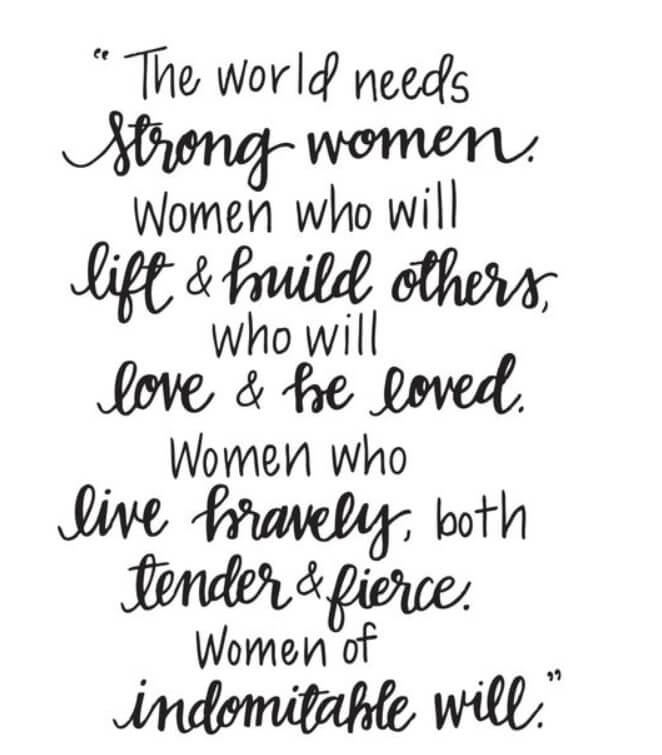 “The world needs
strong women.
Women who will
lift & build others,
who will
love & be loved.
Women who
live bravely, both
tender & fierce.
Women of
indomitable will.”